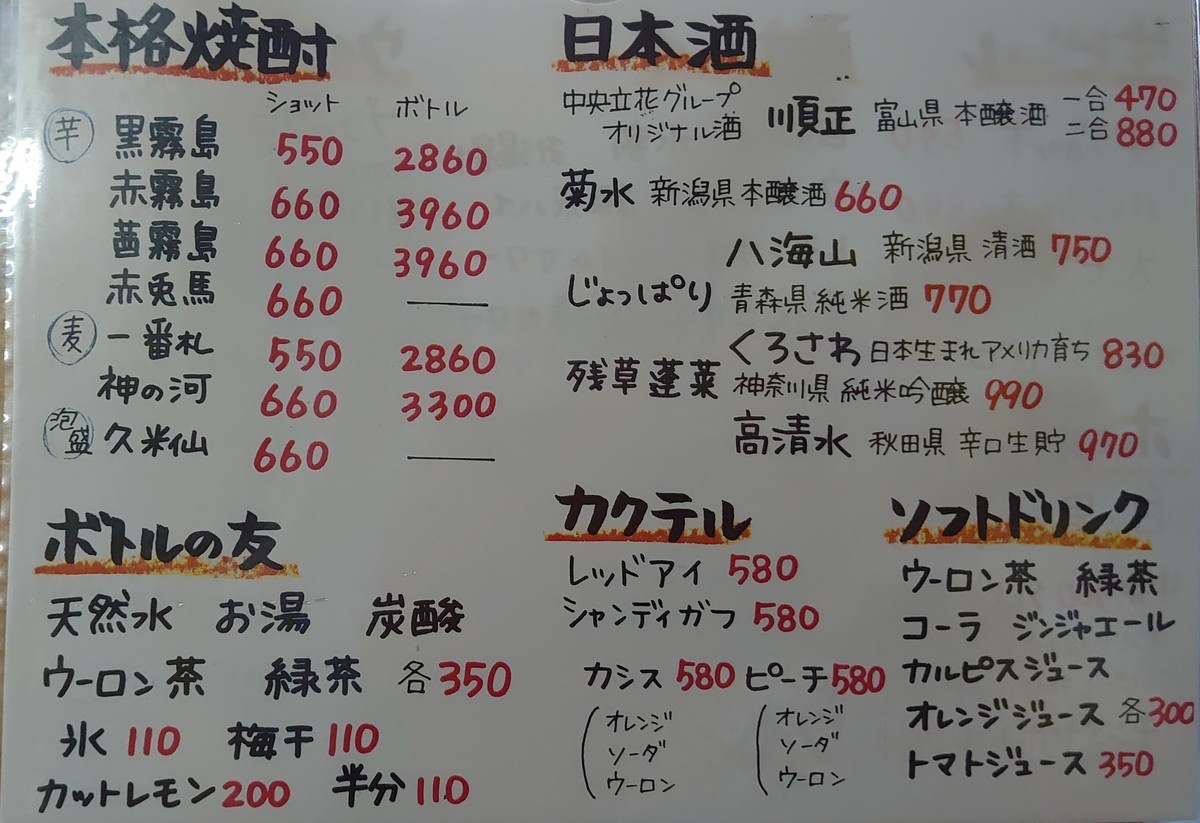 本格焼酎
ショット ボトル
芋 黒霧島 550 2860
赤霧島 660 3960
茜霧島 660 3960
赤兎馬 660 ―
麦 一番札 550 2860
神の河 660 3300
泡盛 久米仙 660 ―
日本酒
中央立花グループ
オリジナル酒 順正 富山県 本醸酒 一合 470
二合 880
菊水 新潟県 本醸酒 660
八海山 新潟県 清酒 750
じょっぱり 青森県 純米酒 770
くろさわ 日本生まれアメリカ育ち 830
残草蓬莱 神奈川県 純米吟醸 990
高清水 秋田県 辛口生貯 970
ボトルの友
天然水 お湯 炭酸
ウーロン茶 緑茶 各350
氷 110 梅干 110
カットレモン 200 半分 110
カクテル
レッドアイ 580
シャンディガフ 580
カシス 580 ピーチ 580
オレンジ オレンジ
ソーダ ソーダ
ウーロン ウーロン
ソフトドリンク
ウーロン茶 緑茶
コーラ ジンジャエール
カルピスジュース
オレンジジュース 各300
トマトジュース 350